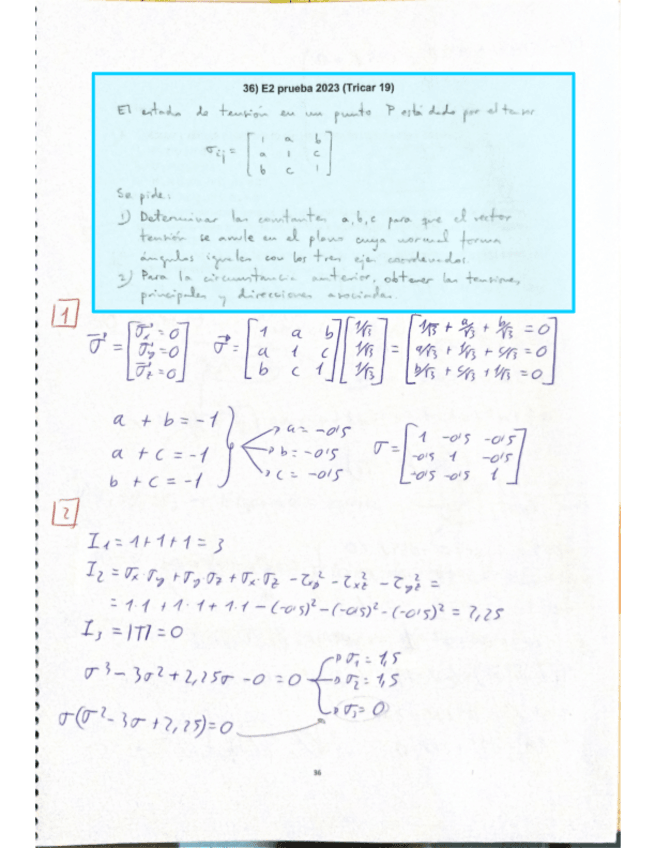 36) E2 prueba 2023 (Tricar 19)
El estado de tensión en un punto P está dado por el tensor
σij = [ 1 a b
a 1 c
b c 1 ]
Se pide:
1) Determinar las constantes a, b, c para que el vector
tensión se anule en el plano cuya normal forma
ángulos iguales con los tres ejes coordenados.
2) Para la circunstancia anterior, obtener las tensiones
principales y direcciones asociadas.
1
σ⃗ = [ σx = 0 σ⃗ = [ 1 a b [ 1/√3 = [ 1/√3 + a/√3 + b/√3 = 0
σy = 0 a 1 c 1/√3 a/√3 + 1/√3 + c/√3 = 0
σz = 0 ] b c 1 ] 1/√3 ] b/√3 + c/√3 + 1/√3 = 0 ]
a + b = -1 a = -0'5
a + c = -1 b = -0'5 σ = [ 1 -0'5 -0'5
b + c = -1 c = -0'5 -0'5 1 -0'5
-0'5 -0'5 1 ]
2
I1 = 1+1+1 = 3
I2 = σx·σy + σy·σz + σx·σz - τxy² - τxz² - τyz² =
= 1·1 + 1·1 + 1·1 - (-0'5)² - (-0'5)² - (-0'5)² = 2,25
I3 = |T| = 0
σ³ - 3σ² + 2,25σ - 0 = 0 σ1 = 1,5
σ2 = 1,5
σ3 = 0
σ(σ² - 3σ + 2,25) = 0
36